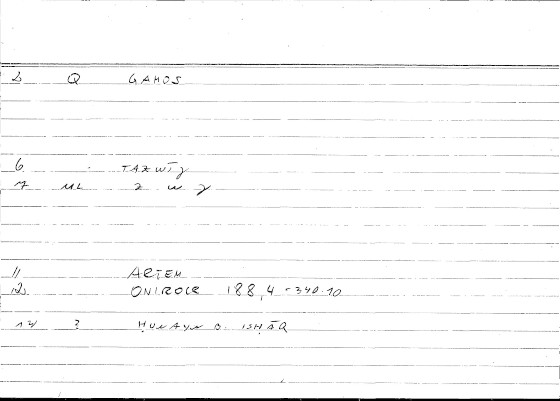 2 Q GAMOS
6 TAZWĪJ
7 ML Z W J
11 ARTEM
12 ONIROCR 188,4 - 340.10
14 ? ḤUNAYN B. ISḤĀQ